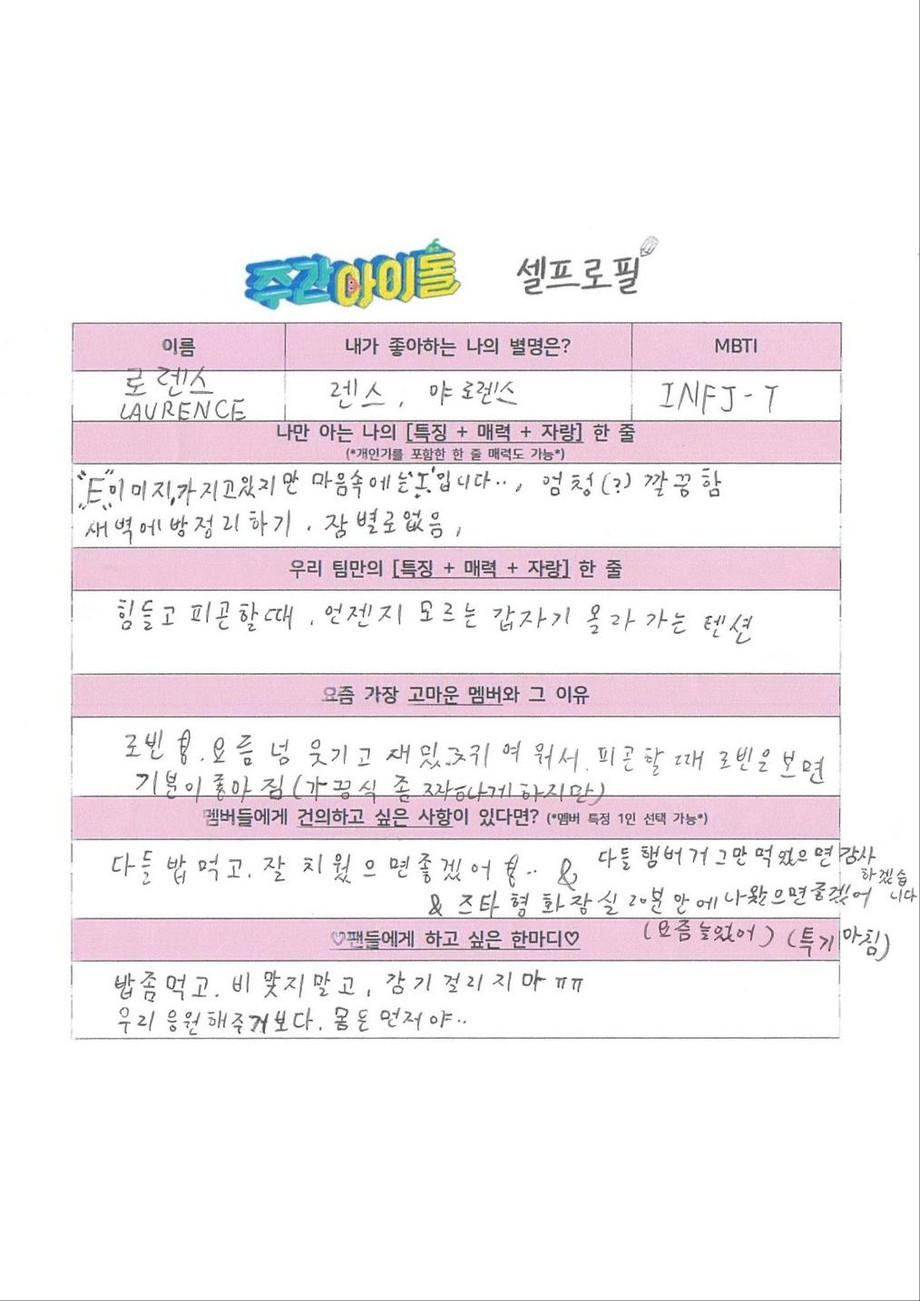 주간아이돌 셀프로필
이름 내가 좋아하는 나의 별명은? MBTI
로렌스
LAURENCE
렌스, 야 로렌스
INFJ-T
나만 아는 나의 [특징 + 매력 + 자랑] 한 줄
(*개인기를 포함한 한 줄 매력도 가능*)
"E"이미지 가지고있지만 마음속에는 "I"입니다.., 엄청(?) 깔끔함
새벽에 방정리하기, 잠 별로없음,
우리 팀만의 [특징 + 매력 + 자랑] 한 줄
힘들고 피곤할때, 언젠지 모르는 갑자기 올라가는 텐션
요즘 가장 고마운 멤버와 그 이유
로빈형. 요즘 넘 웃기고 재밌고 귀여워서. 피곤할 때 로빈을 보면
기분이 좋아짐 (가끔식 좀 짜증나게하지만)
멤버들에게 건의하고 싶은 사항이 있다면? (*멤버 특정 1인 선택 가능*)
다들 밥 먹고. 잘 치웠으면좋겠어형.. & 다들 햄버거 그만 먹었으면 감사
하겠습
니다
& 즈타형 화장실 20분 안에 나왔으면좋겠어
(요즘 늘었어) (특기 아침)
♡팬들에게 하고 싶은 한마디♡
밥좀먹고. 비 맞지말고, 감기걸리지마 ㅠㅠ
우리 응원해주거보다. 몸은 먼저야..